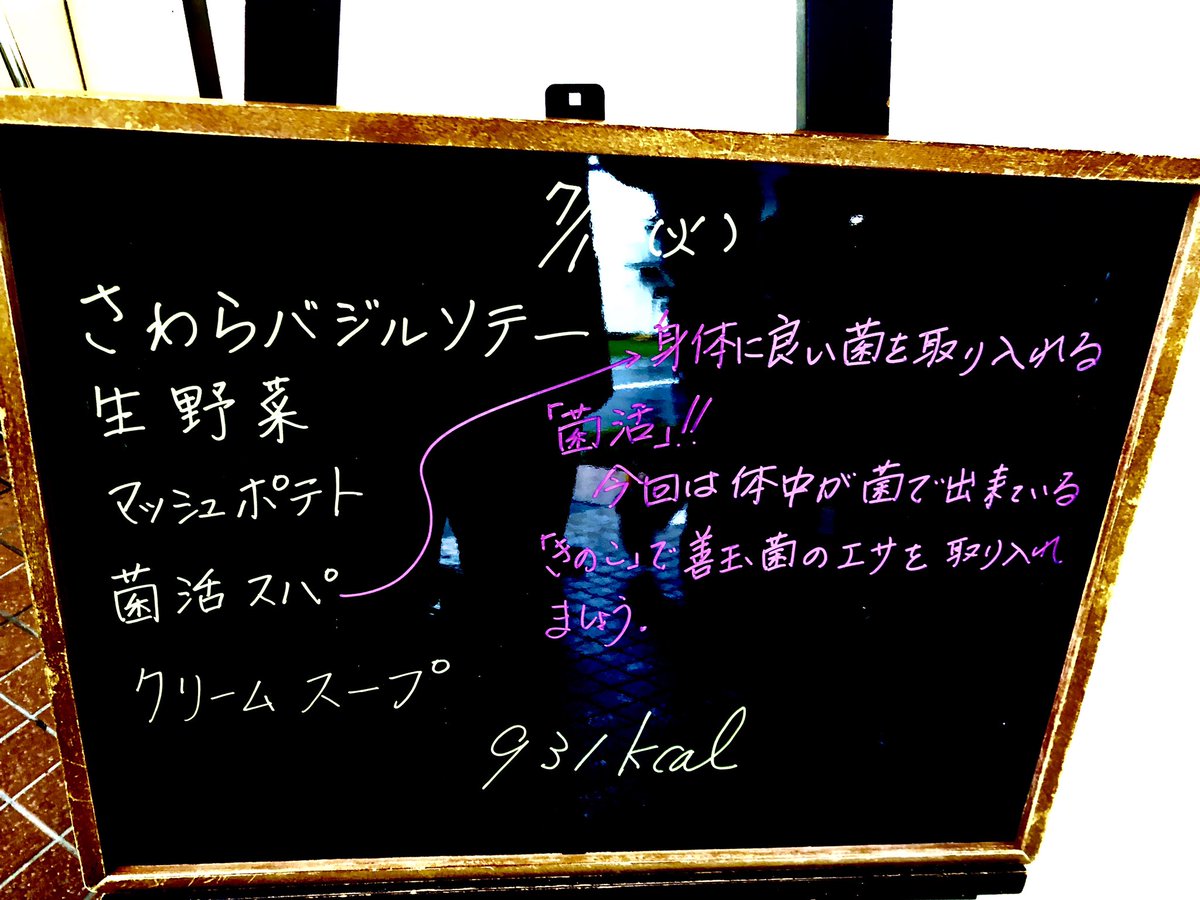 7/1 (火)
さわらバジルソテー
生野菜
マッシュポテト
菌活スパ
クリームスープ
→身体に良い菌を取り入れる
「菌活」!!
今回は体中が菌で出来ている
「きのこ」で善玉菌のエサを取り入れ
ましょう.
931kcal